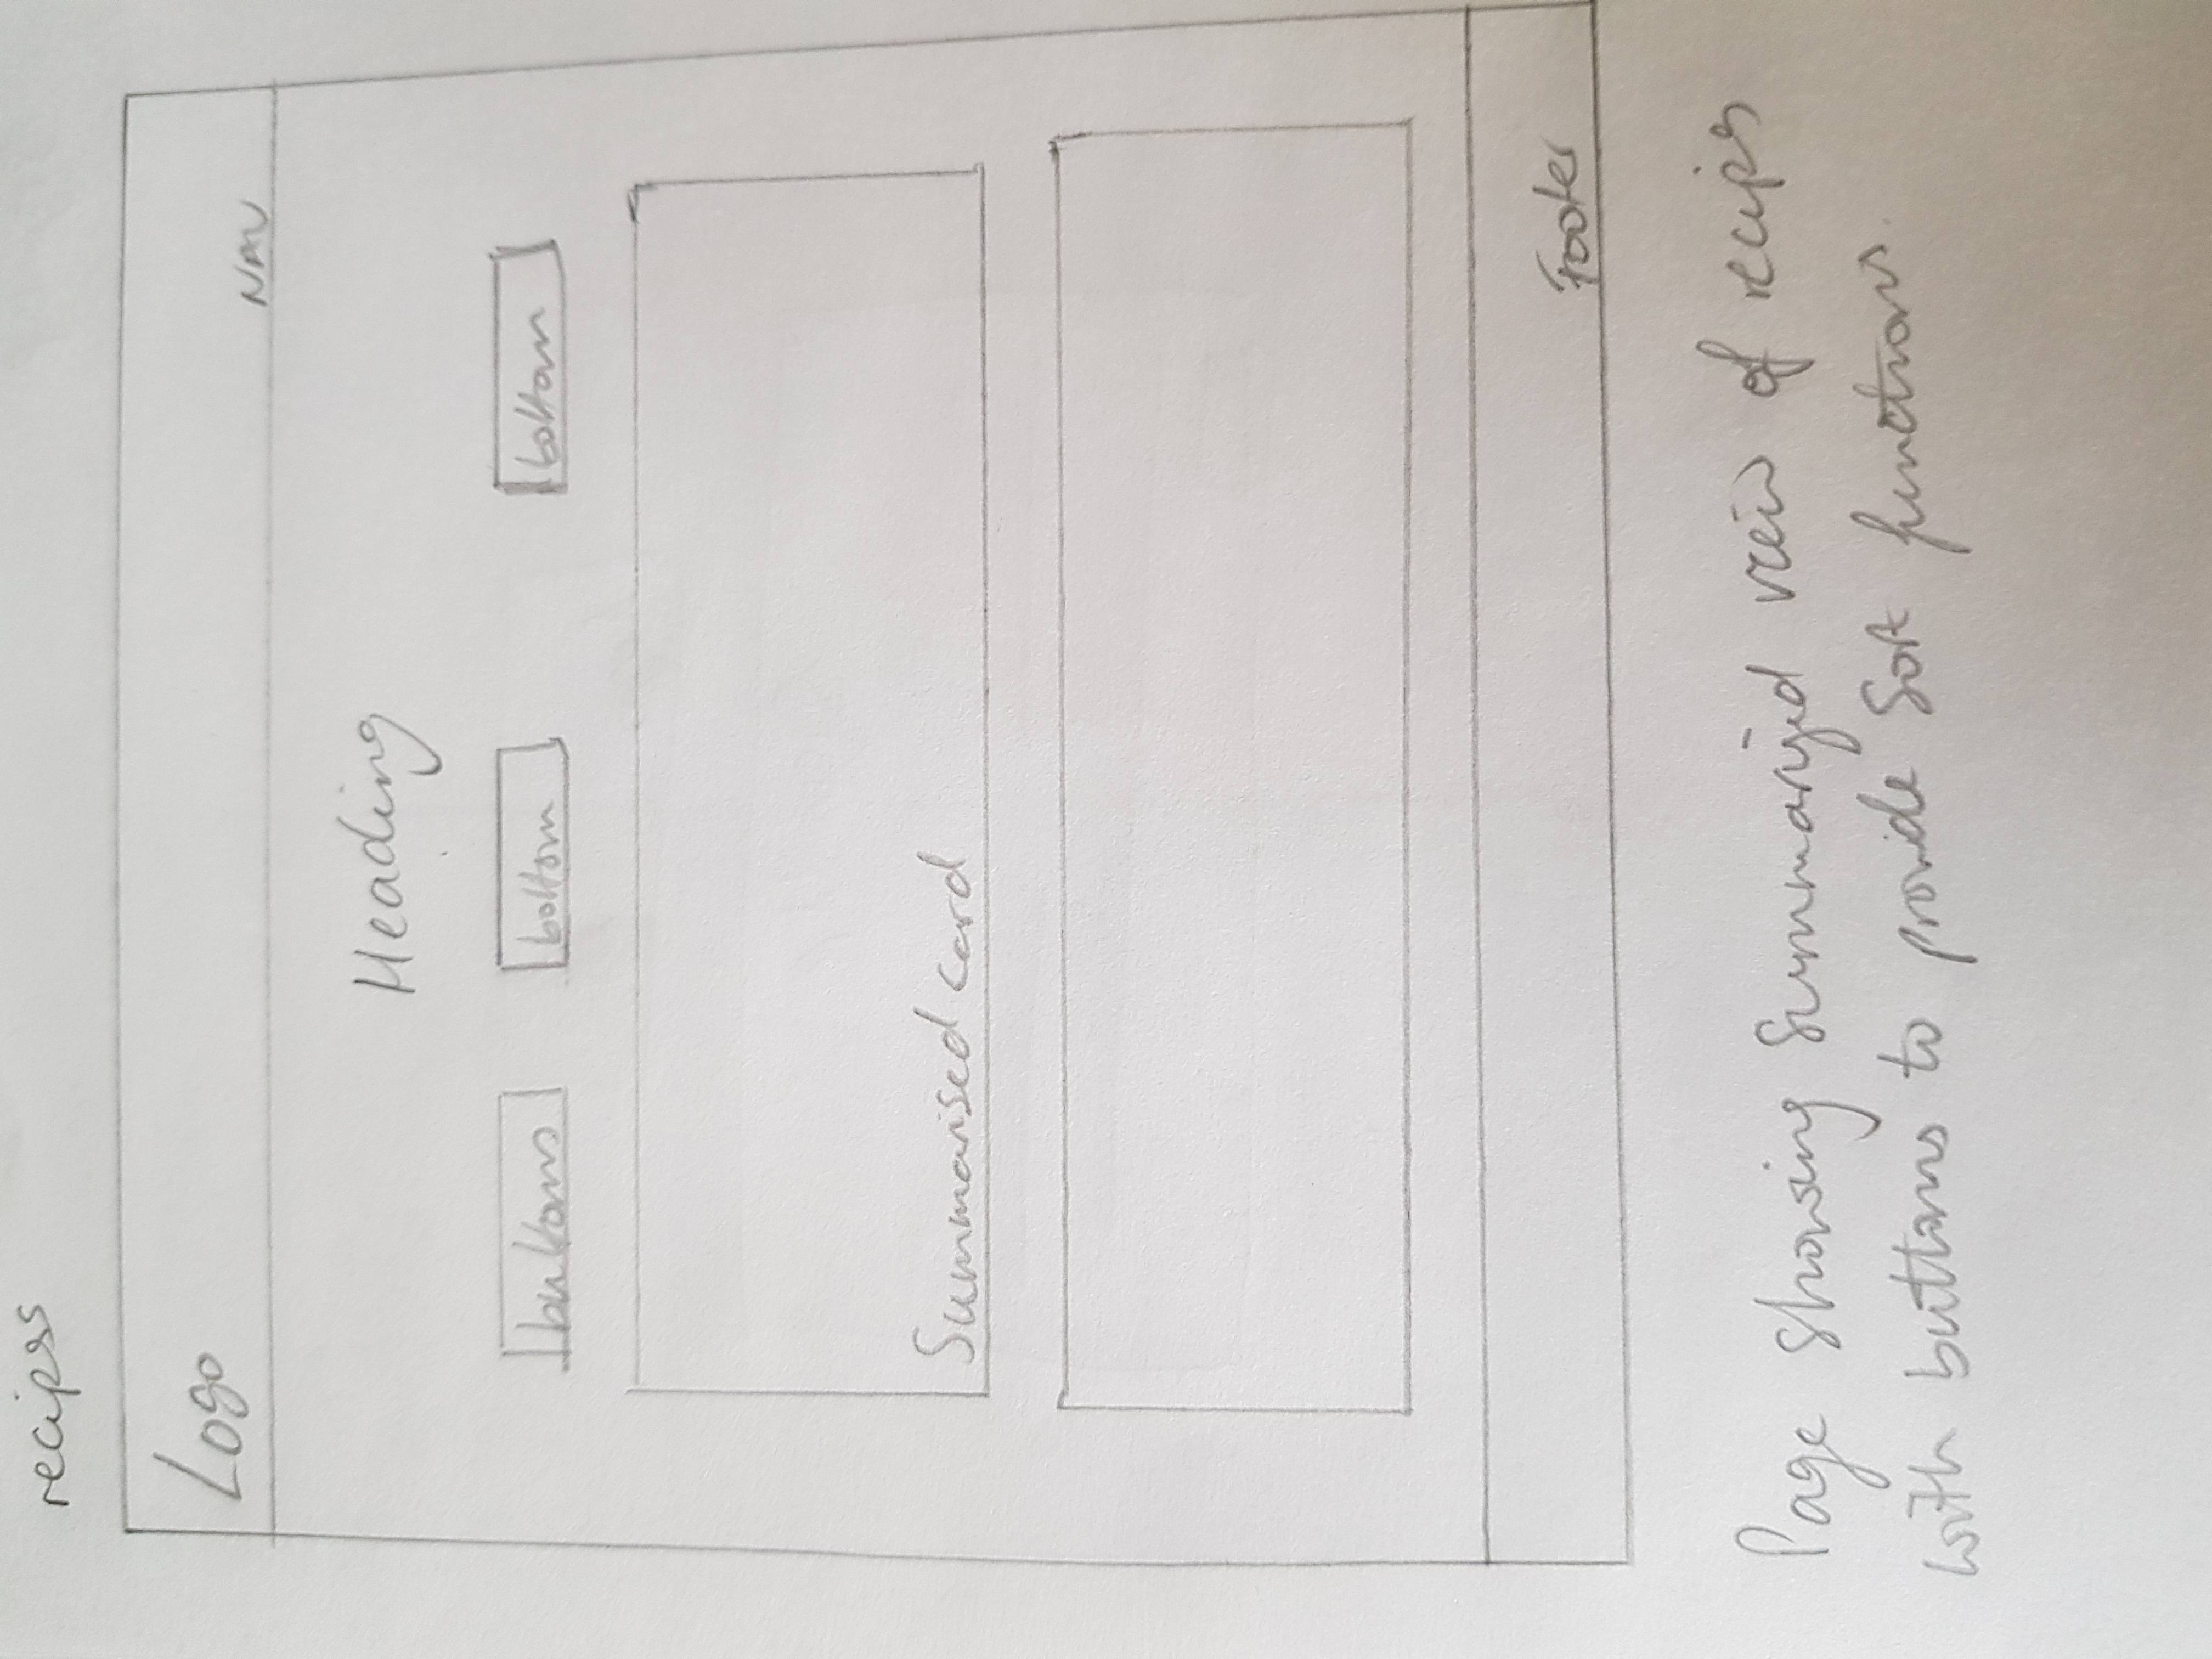 recipes
Logo
NAV
Heading
buttons bottom bottom
Summarised card
Footer
Page showing Summarized view of recipes
with buttons to provide Sort functions.